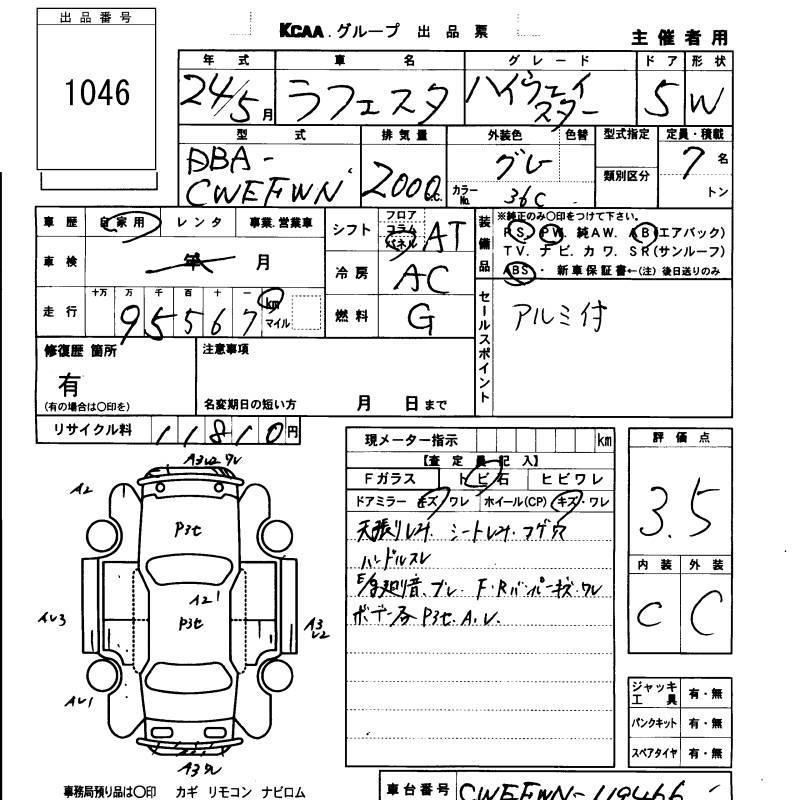 出品番号
1046
KCAA.グループ 出品票
主催者用
年式 車名 グレード ドア 形状
24/5月 ラフェスタ ハイウェイスター 5 W
型式 排気量 外装色 色替 型式指定 定員・積載
DBA-CWEFWN 2000c.c. グレー カラーNo. 36C 類別区分 7名 トン
車歴 自家用 レンタ 事業.営業車
車検 年 月
走行 十万 万 千 百 十 一
95567 km マイル
シフト フロア コラム パネル AT
冷房 AC
燃料 G
装備品
※純正のみ〇印をつけて下さい。
PS. PW. 純AW. AB(エアバック)
TV. ナビ. カワ. SR(サンルーフ)
ABS・ 新車保証書←(注) 後日送りのみ
セールスポイント
アルミ付
修復歴 箇所
有
(有の場合は〇印を)
注意事項
名変期日の短い方 月 日まで
リサイクル料 11810円
現メーター指示 km
【査定員記入】
Fガラス トビ石 ヒビワレ
ドアミラー キズ・ワレ ホイール(CP) キズ・ワレ
ハンドルスレ
F・Rバンパーキズ・ワレ
P3セ.A.U.
評価点
3.5
内装 外装
C C
A3
A2
P3セ
A21
P3セ
AU3
A3
U2
AU1
A3
ジャッキ工具 有・無
パンクキット 有・無
スペアタイヤ 有・無
事務局預り品は〇印 カギ リモコン ナビロム
車台番号 CWEFWN-119466